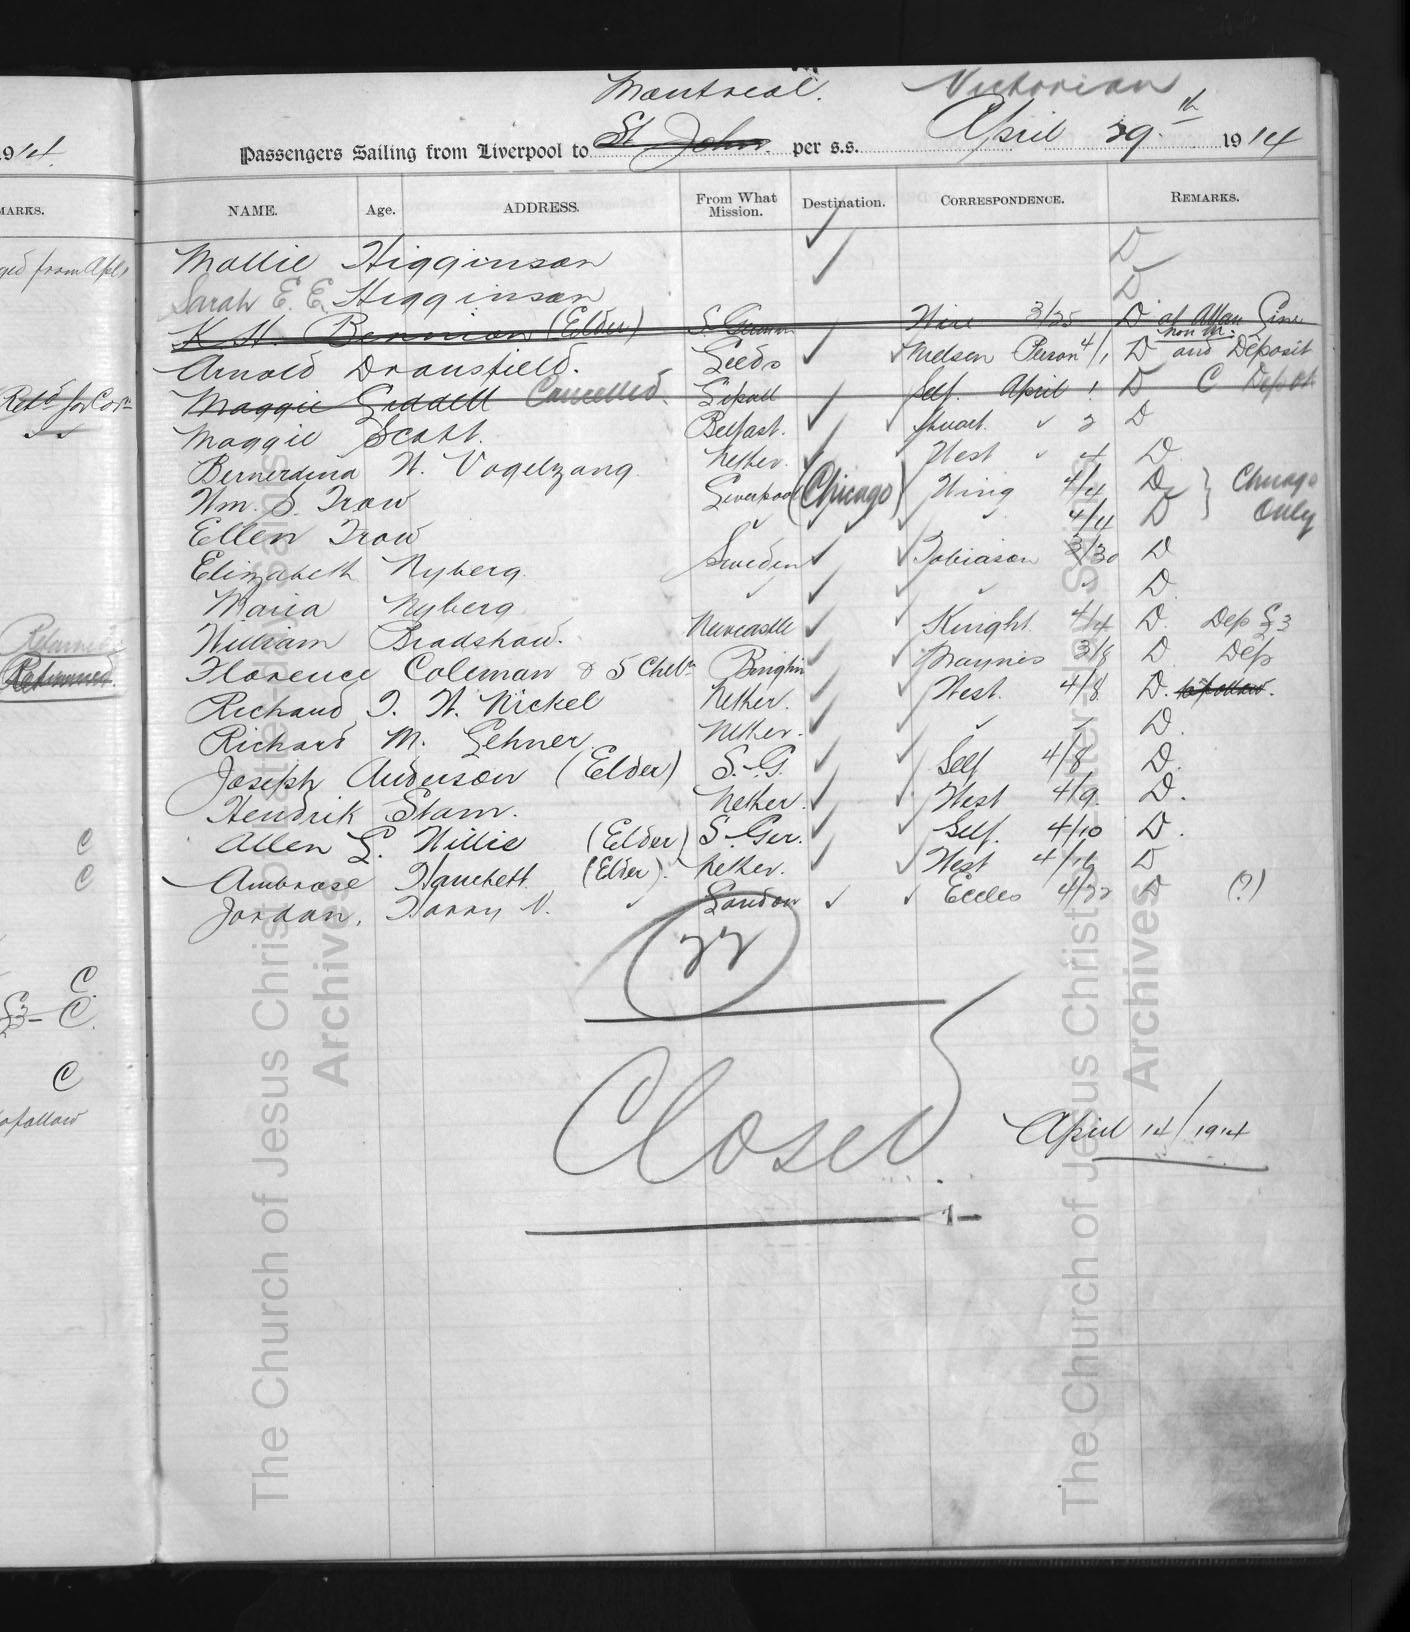 Montreal. Victorian
Passengers Sailing from Liverpool to St. John. per s.s. April 29th 1914
NAME. Age. ADDRESS. From What Mission. Destination. CORRESPONDENCE. REMARKS.
Mollie Higginson D
Sarah E. E. Higginson D
K. H. Bennion (Elder) S. German Wire 3/25 D of Allan Line
Arnold Dransfield. Leeds Nielsen Person 4/1 D and Deposit
Maggie Liddell Cancelled. Self. April 1 D C Deposit
Maggie Scott. Belfast. Stuart. 2 D
Bernerdina W. Vogelzang Nether. West 4 D
Wm. S. Trow Liverpool (Chicago) Wing 4/4 D } Chicago
Ellen Trow 4/4 D Only
Elizabeth Nyberg. Sweden Tobiason 3/30 D
Maria Nyberg D
William Bradshaw. Newcastle Knight 4/4 D. Dep £3
Florence Coleman & 5 Chldn Maynes 3/8 D Dep
Richard T. W. Nickel Nether. West. 4/8 D. to follow.
Richard M. Lehner. Nether. D.
Joseph Anderson (Elder) S.-G. Self 4/8 D.
Hendrik Stam. Nether. West 4/9. D.
Allen L. Willie (Elder) S-Ger. Self. 4/10 D.
Ambrose Hanchett. (Elder). Nether. West D
Jordan, Harry V. London Eccles 4/22 D (?)
22
Closed
April 14/1914
1914.
MARKS.
C
C
C
£3- C.
C
to follow
Returned
Returned.
The Church of Jesus Christ of Latter-day Saints
Archives
The Church of Jesus Christ of Latter-day Saints
Archives